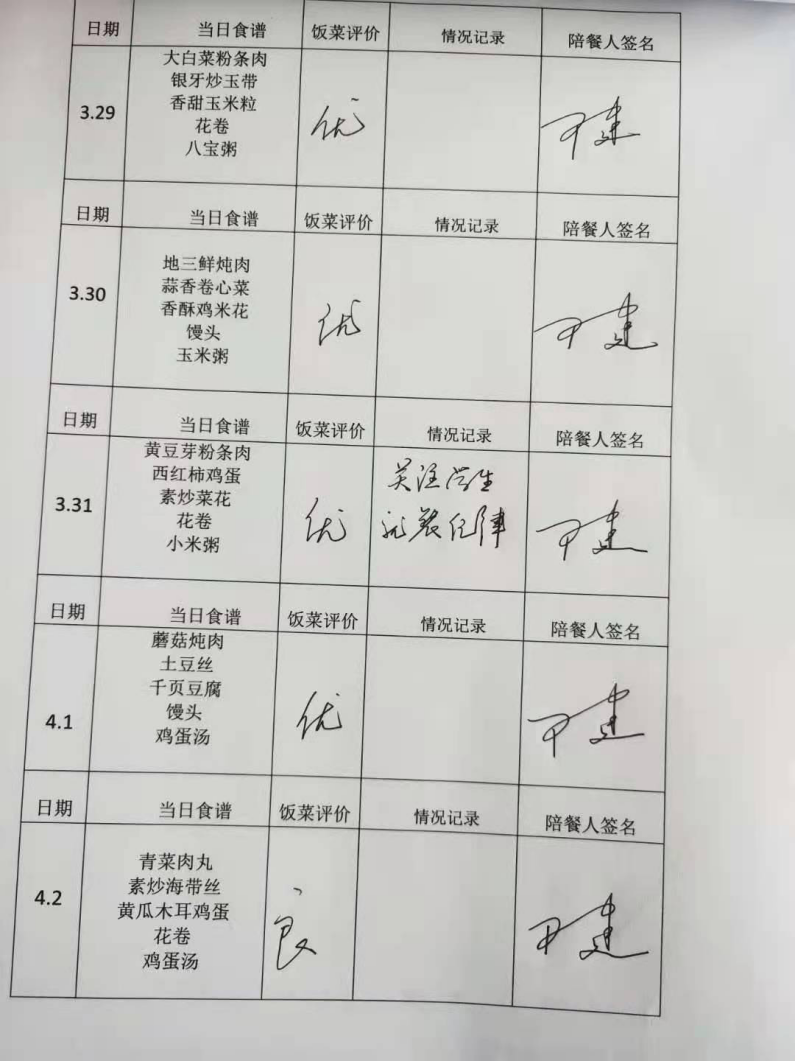 日期 当日食谱 饭菜评价 情况记录 陪餐人签名
3.29
大白菜粉条肉
银牙炒玉带
香甜玉米粒
花卷
八宝粥
优
日期 当日食谱 饭菜评价 情况记录 陪餐人签名
3.30
地三鲜炖肉
蒜香卷心菜
香酥鸡米花
馒头
玉米粥
优
日期 当日食谱 饭菜评价 情况记录 陪餐人签名
3.31
黄豆芽粉条肉
西红柿鸡蛋
素炒菜花
花卷
小米粥
优
关注学生
就餐纪律
日期 当日食谱 饭菜评价 情况记录 陪餐人签名
4.1
蘑菇炖肉
土豆丝
千页豆腐
馒头
鸡蛋汤
优
日期 当日食谱 饭菜评价 情况记录 陪餐人签名
4.2
青菜肉丸
素炒海带丝
黄瓜木耳鸡蛋
花卷
鸡蛋汤
良